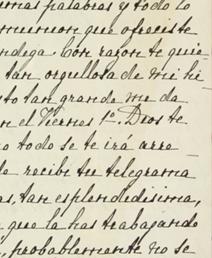 palabras y todo lo
que ofreciste
con razon te quie-
tan orgullosa de mi hi
to tan grande me da
n el Viernes 1º. Dios te
o todo se te irá arre
recibi tu telegrama
s, tan esplendedisima,
que la has trabajando
probablemente no se